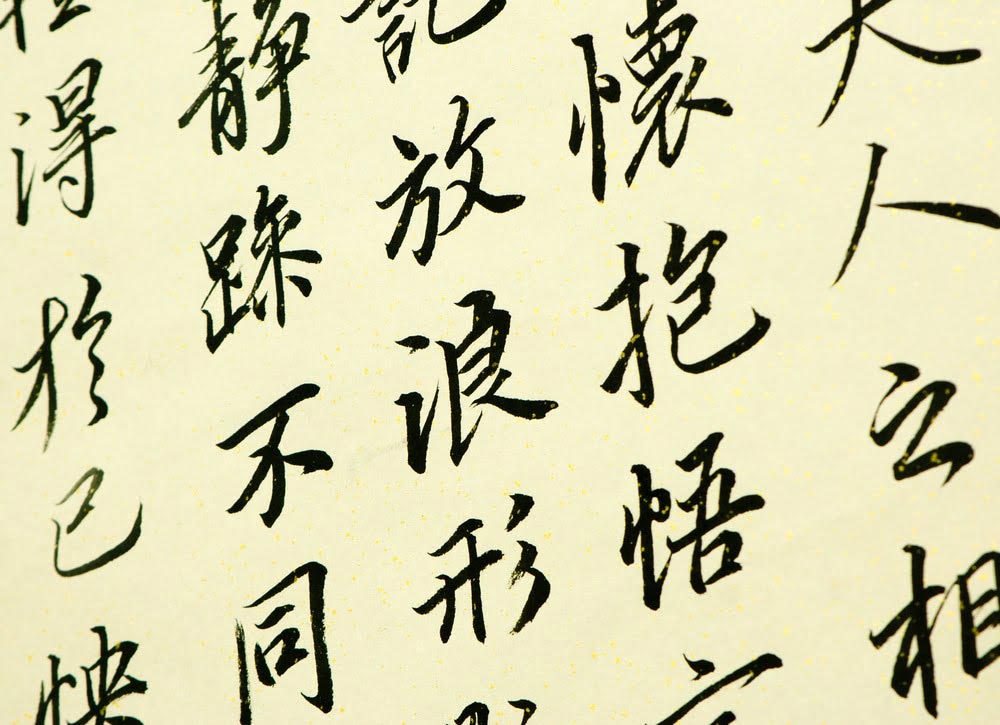 夫人之相
懷抱悟
託放浪形
靜躁不同
得於己怏